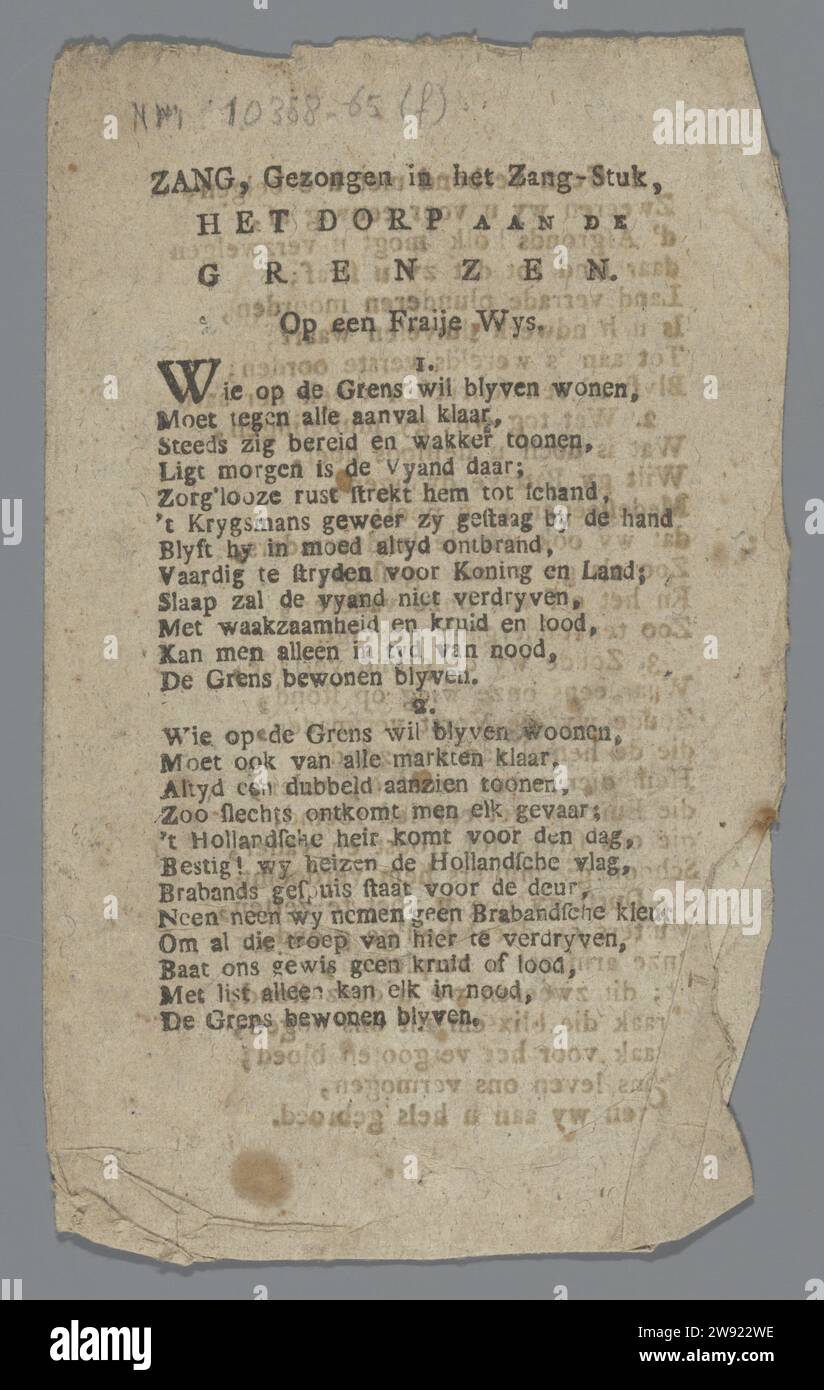 10368-65 (f)
ZANG, Gezongen in het Zang-Stuk,
HET DORP AAN DE
GRENZEN.
Op een Fraije Wys.
1.
Wie op de Grens wil blyven wonen,
Moet tegen alle aanval klaar,
Steeds zig bereid en wakker toonen,
Ligt morgen is de Vyand daar;
Zorg'looze rust ſtrekt hem tot ſchand,
't Krygsmans geweer zy geſtaag by de hand
Blyft hy in moed altyd ontbrand,
Vaardig te ſtryden voor Koning en Land;
Slaap zal de vyand niet verdryven,
Met waakzaamheid en kruid en lood,
Kan men alleen in tyd van nood,
De Grens bewonen blyven.
2.
Wie op de Grens wil blyven woonen,
Moet ook van alle markten klaar,
Altyd een dubbeld aanzien toonen,
Zoo ſlechts ontkomt men elk gevaar;
't Hollandſche heir komt voor den dag,
Bestig! wy heizen de Hollandſche vlag,
Brabands geſpuis ſtaat voor de deur,
Neen neen wy nemen geen Brabandſche kleur
Om al die troep van hier te verdryven,
Baat ons gewis geen kruid of lood,
Met list alleen kan elk in nood,
De Grens bewonen blyven.
alamy
Image ID: 2W922WE
www.alamy.com